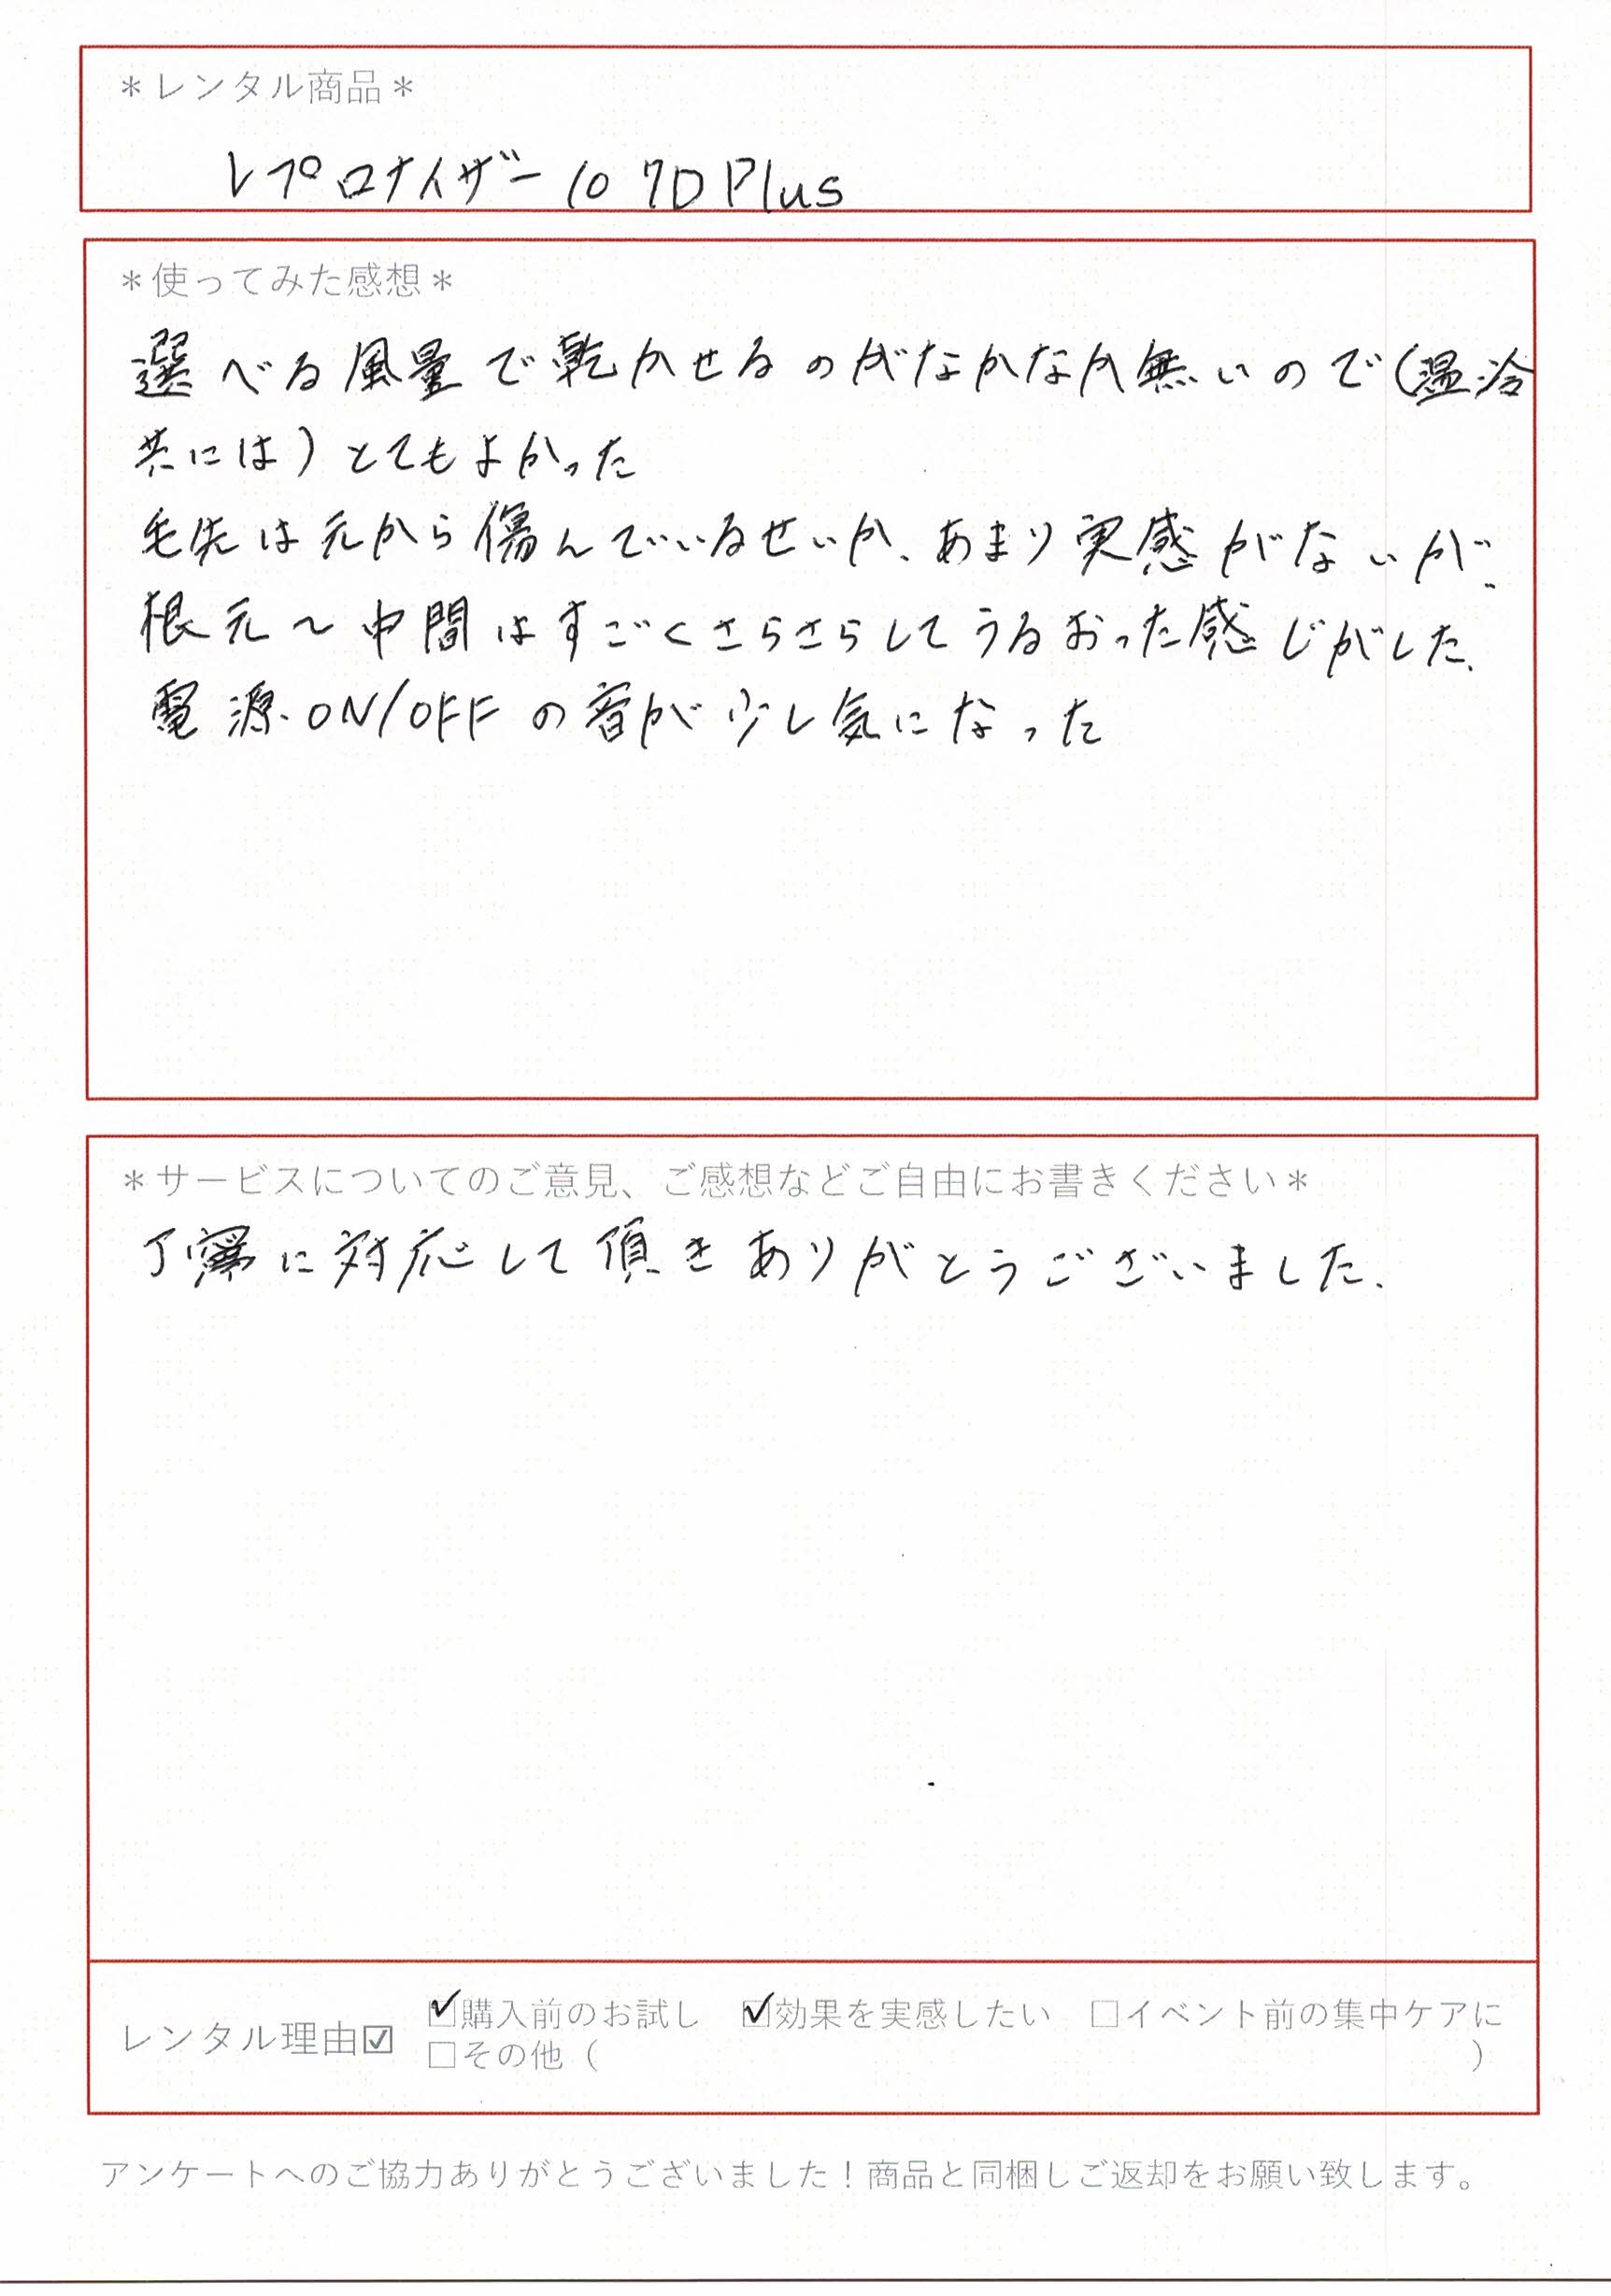 ＊レンタル商品＊
レプロナイザー10 7D Plus
＊使ってみた感想＊
選べる風量で乾かせるのがなかなか無いので(温冷
共には)とてもよかった
毛先は元から傷んでいるせいか、あまり実感がないが、
根元〜中間はすごくさらさらしてうるおった感じがした、
電源ON/OFFの音が少し気になった
＊サービスについてのご意見、ご感想などご自由にお書きください＊
丁寧に対応して頂きありがとうございました、
レンタル理由☑ ☑購入前のお試し ☑効果を実感したい □イベント前の集中ケアに
□その他（ ）
アンケートへのご協力ありがとうございました！商品と同梱しご返却をお願い致します。